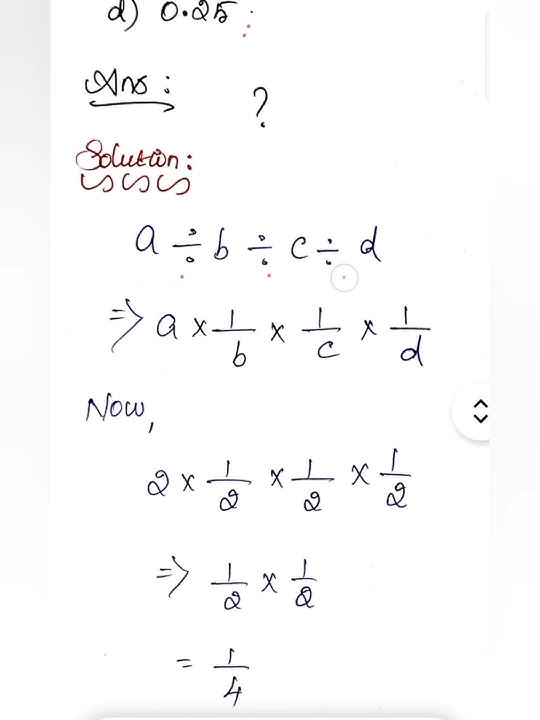 d) 0.25
Ans :
?
Solution:
a ÷ b ÷ c ÷ d
⇒ a × 1/b × 1/c × 1/d
Now,
2 × 1/2 × 1/2 × 1/2
⇒ 1/2 × 1/2
= 1/4